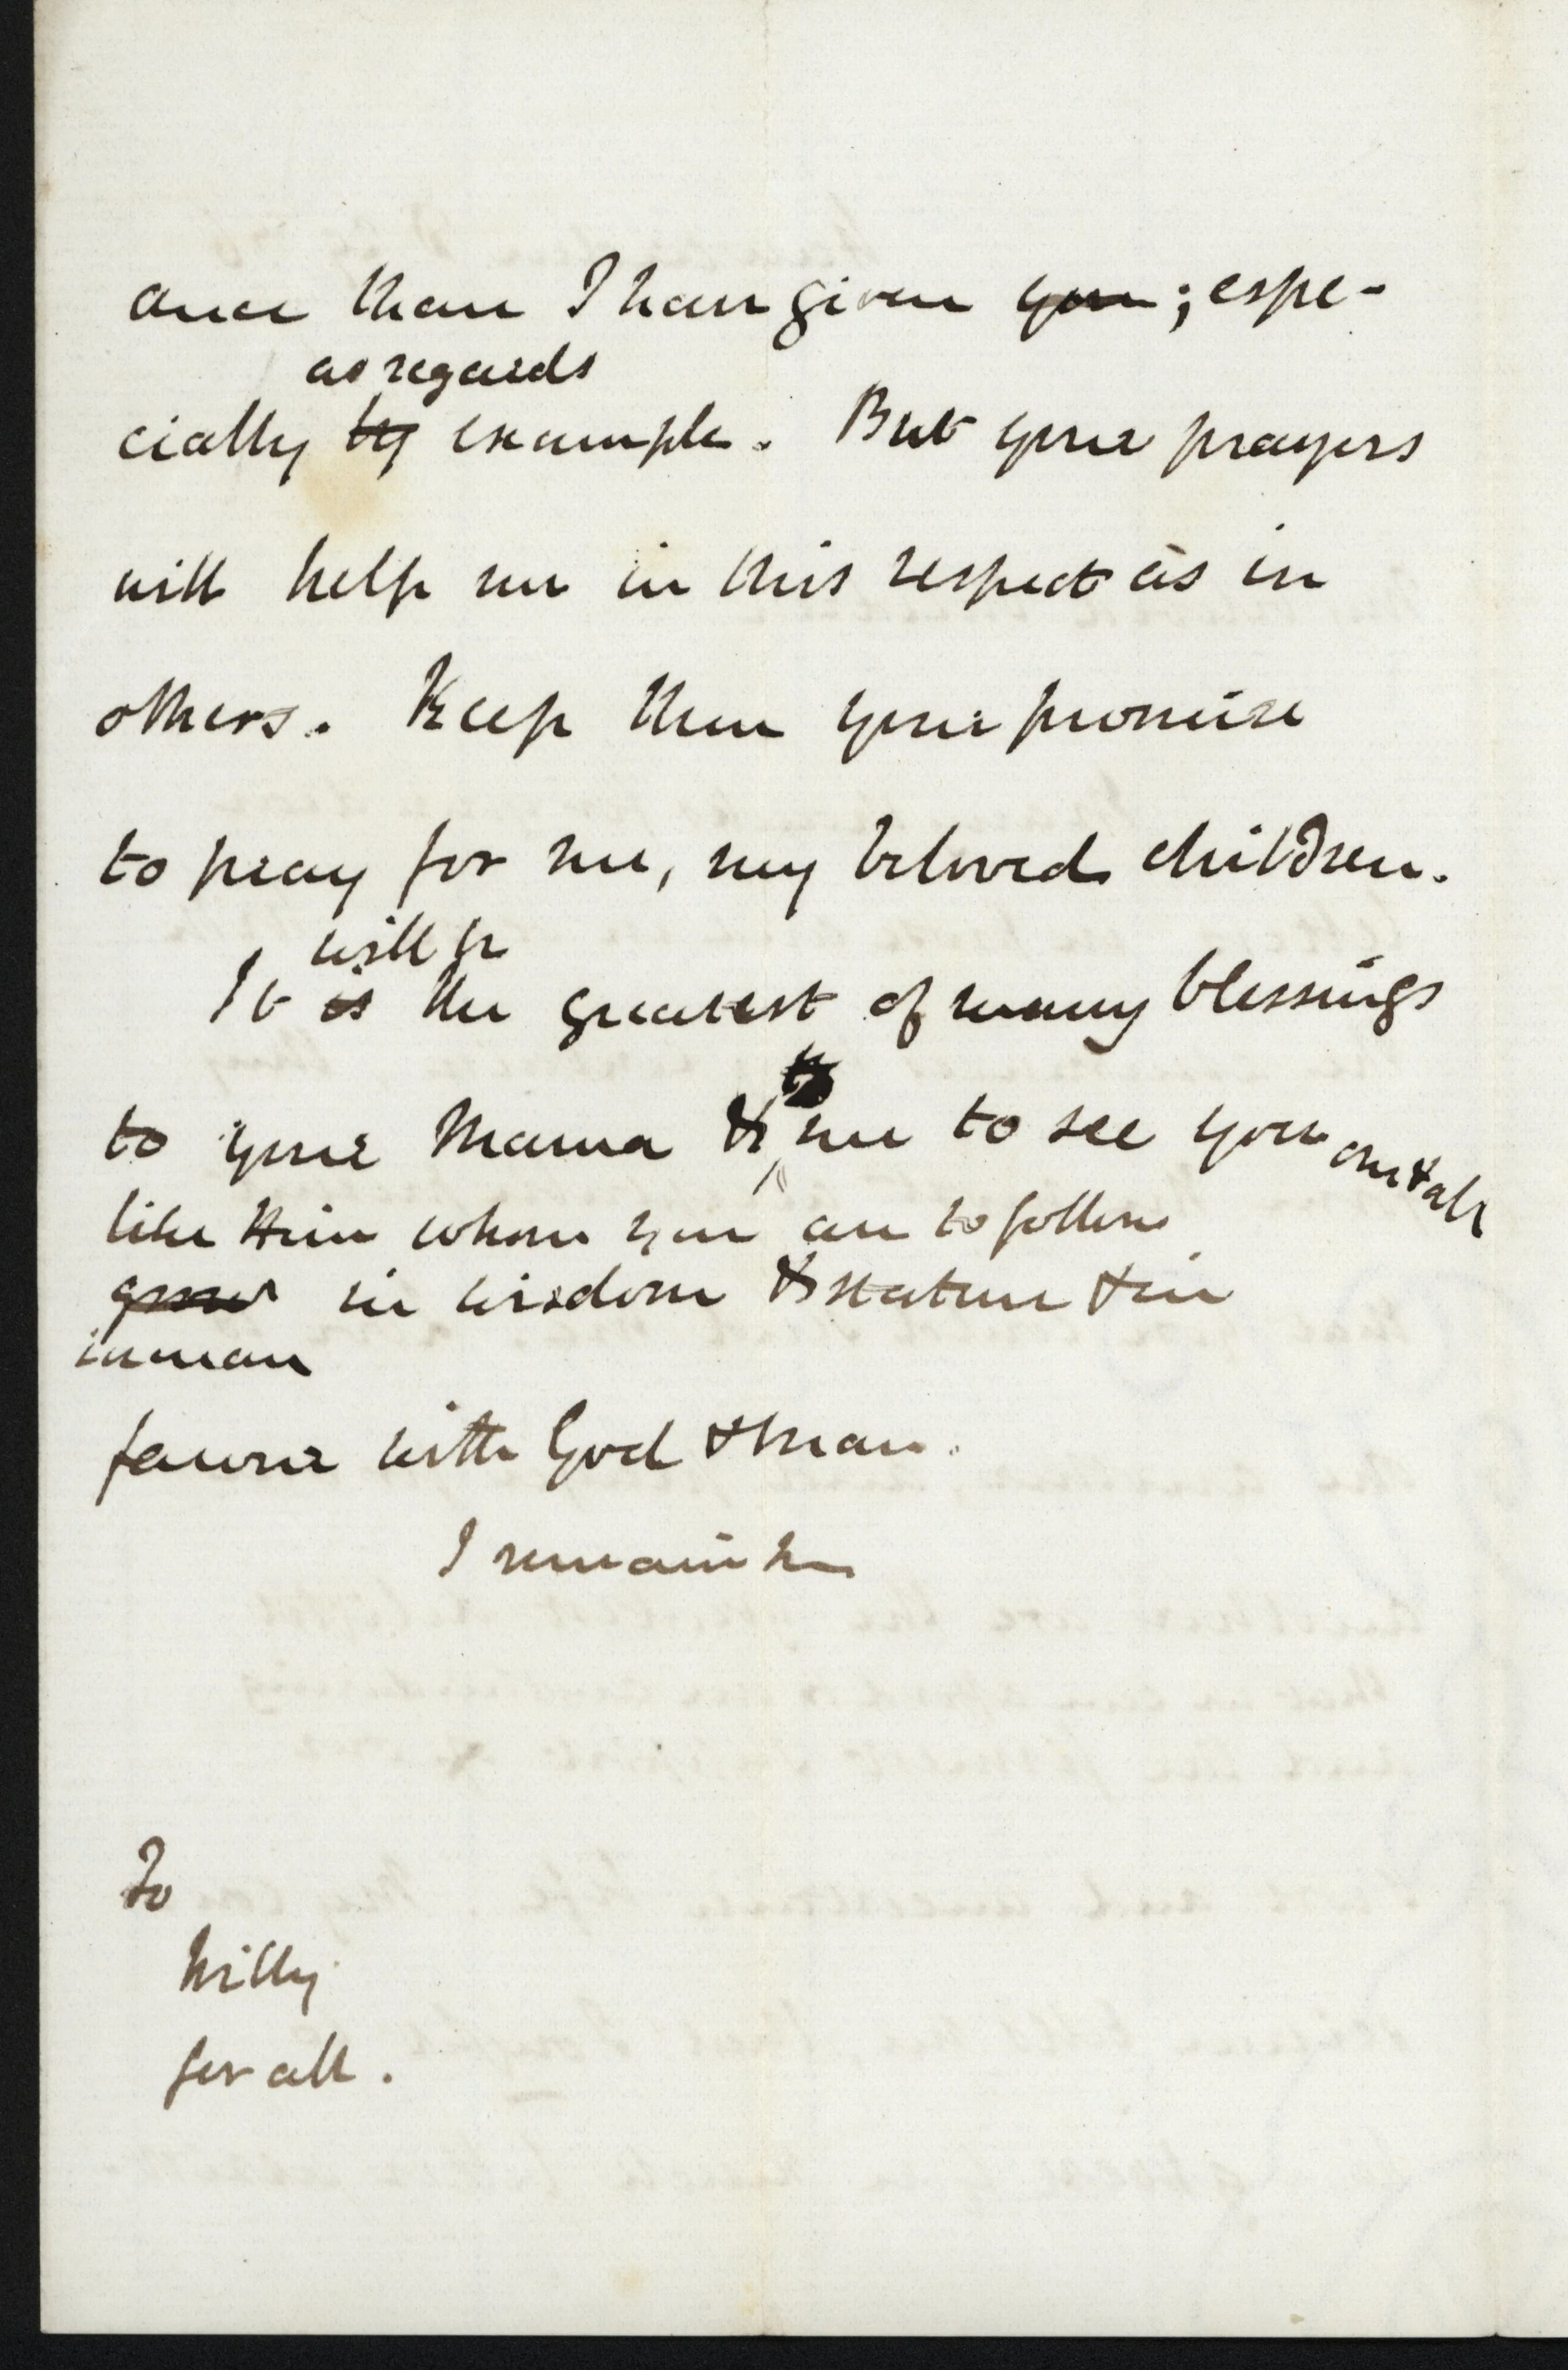 ance than I have given you; espe-
as regards
cially by example. But your prayers
will help me in this respect as in
others. Keep then your promise
to pray for me, my beloved children.
will be
It is the greatest of many blessings
to
to your Mama & me to see you one & all
like Him whom you are to follow
grow in wisdom & stature & in
favour with God & Man.
I remain
To
Willy
for all.